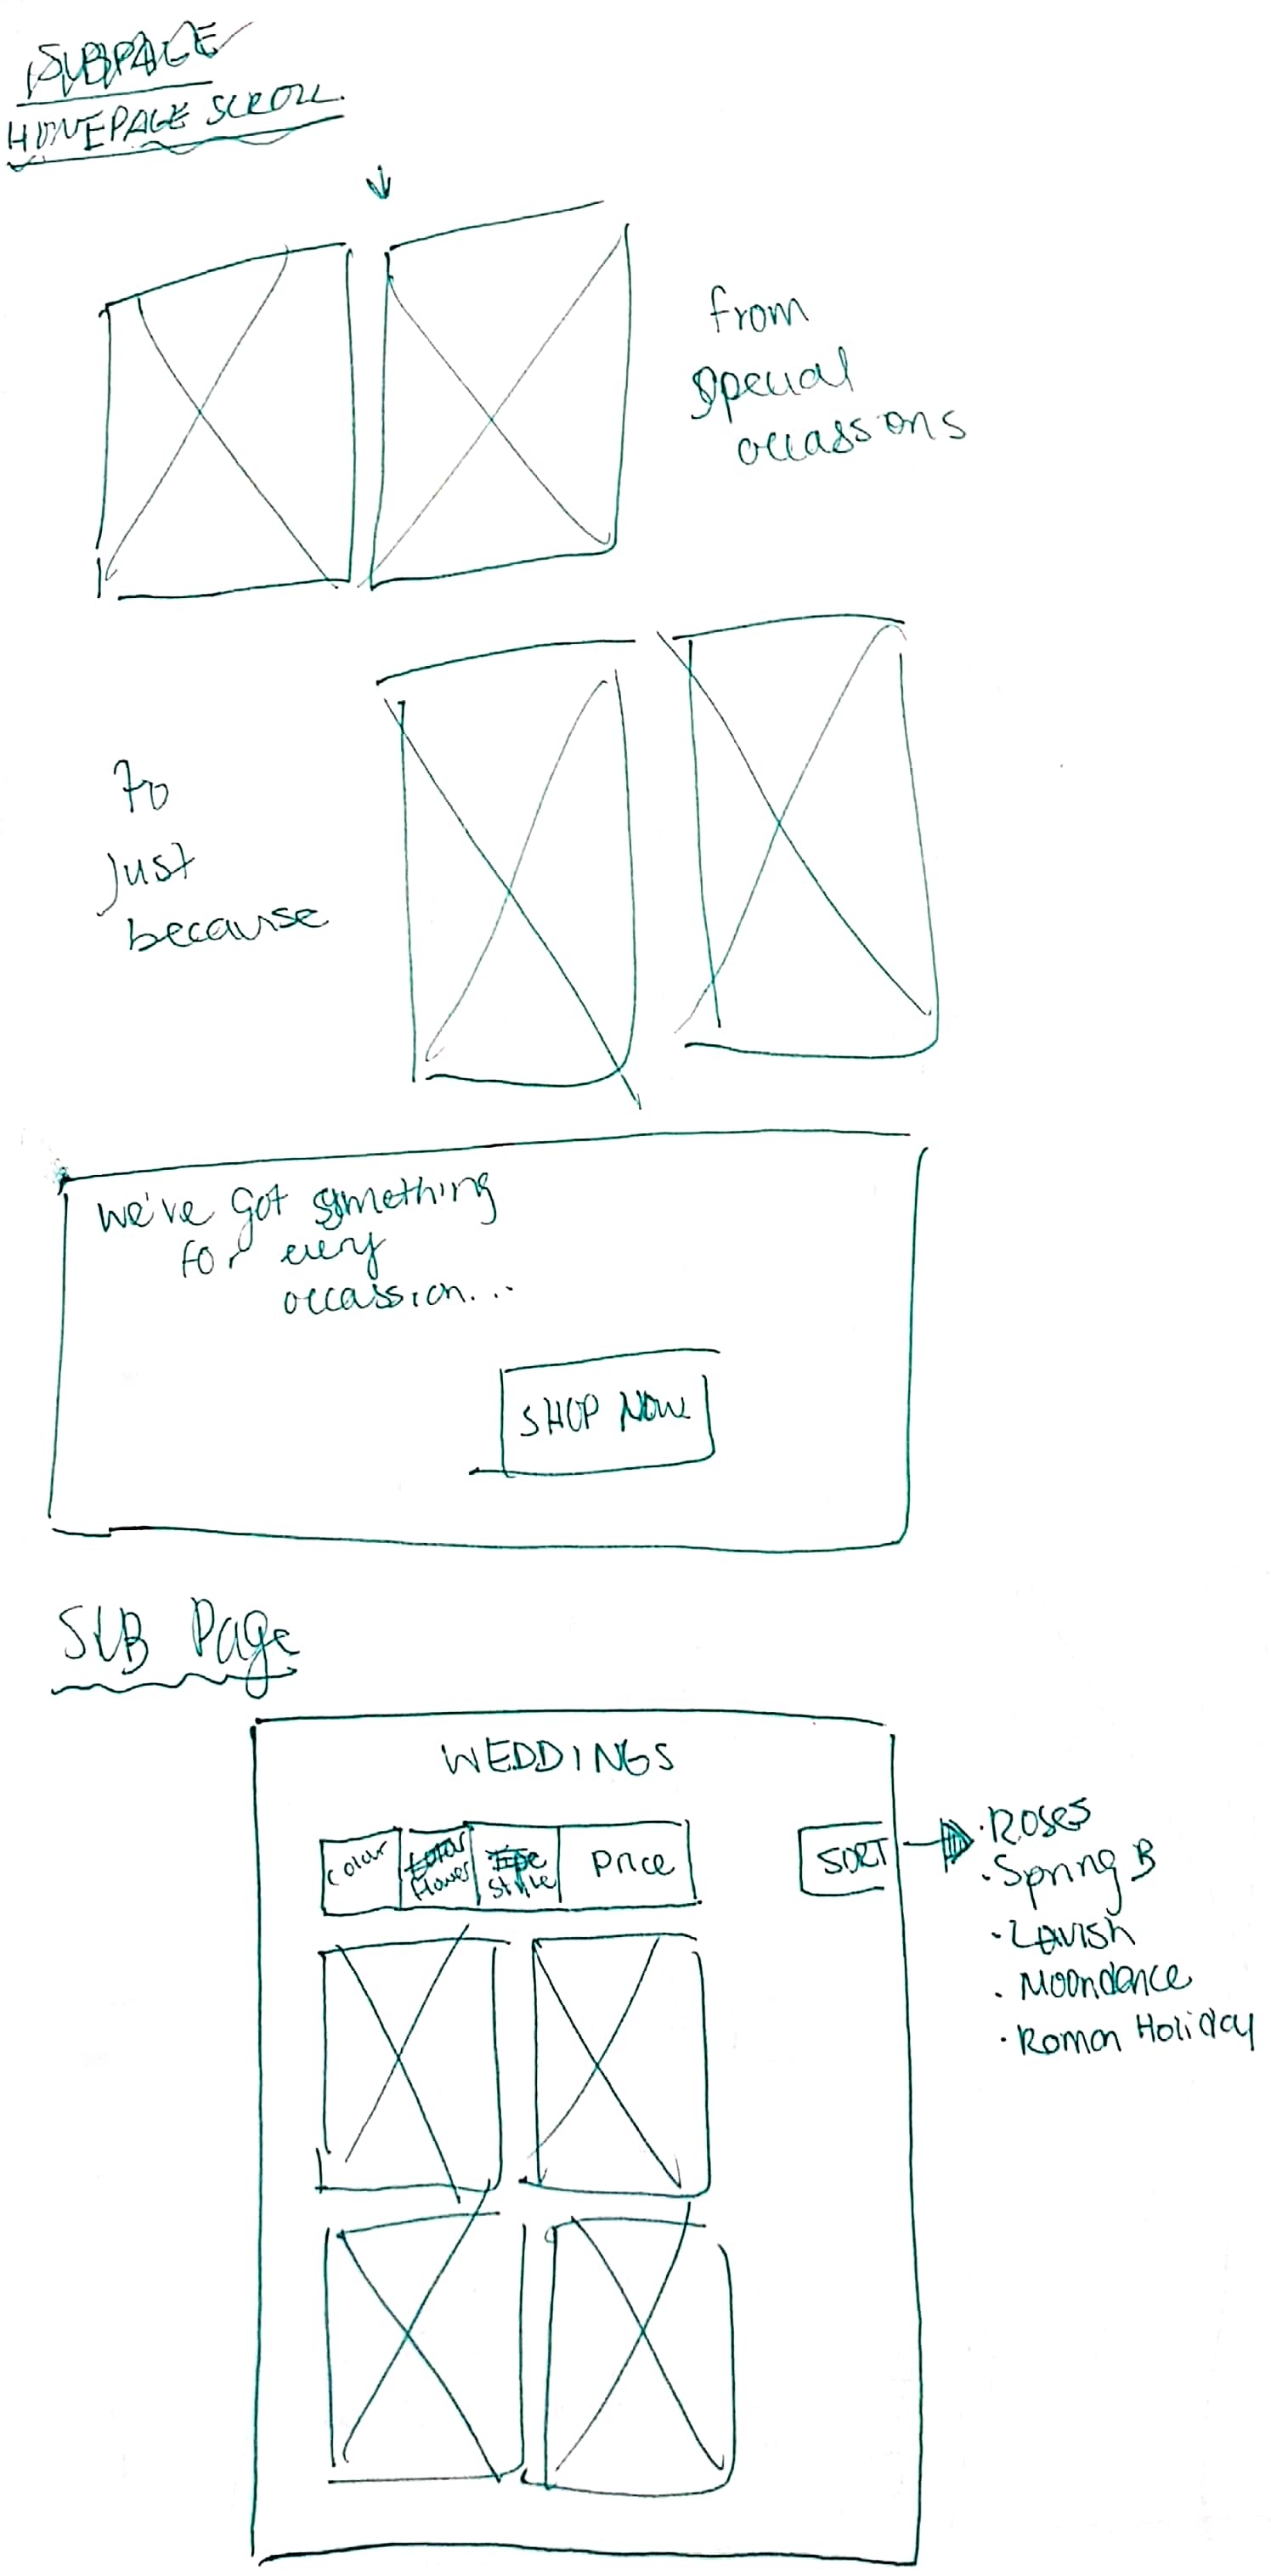 SUBPAGE
HOMEPAGE SCROLL.
from
special
occassions
to
just
because
we've got something
for every
occassion...
SHOP NOW
SUB Page
WEDDINGS
Colour
Flower
Style
Price
SORT
· Roses
· Spring B
· Lavish
· Moondance
· Roman Holiday